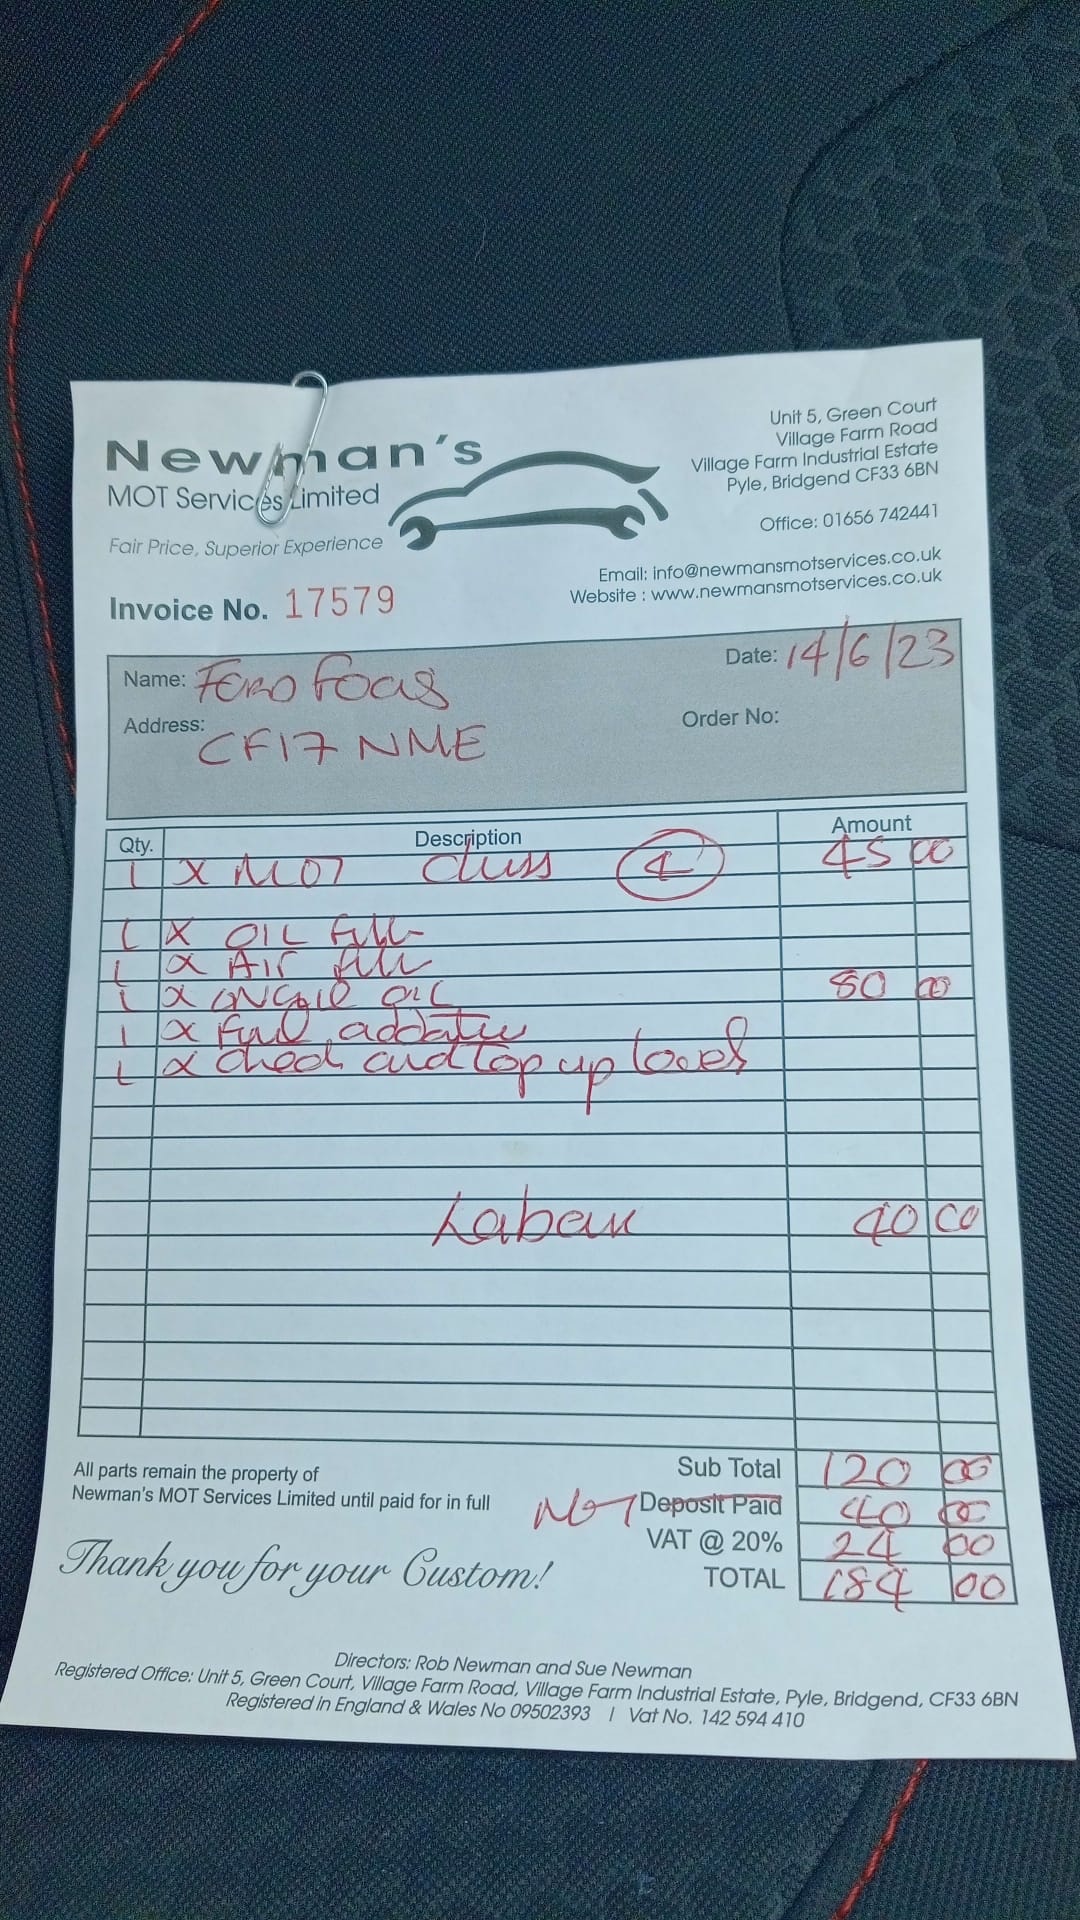 Newman's
MOT Services Limited
Fair Price, Superior Experience
Unit 5, Green Court
Village Farm Road
Village Farm Industrial Estate
Pyle, Bridgend CF33 6BN
Office: 01656 742441
Email: info@newmansmotservices.co.uk
Website : www.newmansmotservices.co.uk
Invoice No. 17579
Name: Ford Focus
Date: 14/6/23
Address: CF17 NME
Order No:
Qty. Description Amount
1 x MOT Class 4 45 00
1 x OIL filter
1 x Air filter
1 x engine oil 80 00
1 x fuel additive
1 x check and top up level
Labour 40 00
Sub Total 120 00
MOT Deposit Paid 40 00
VAT @ 20% 24 00
TOTAL 184 00
All parts remain the property of
Newman's MOT Services Limited until paid for in full
Thank you for your Custom!
Directors: Rob Newman and Sue Newman
Registered Office: Unit 5, Green Court, Village Farm Road, Village Farm Industrial Estate, Pyle, Bridgend, CF33 6BN
Registered in England & Wales No 09502393 | Vat No. 142 594 410